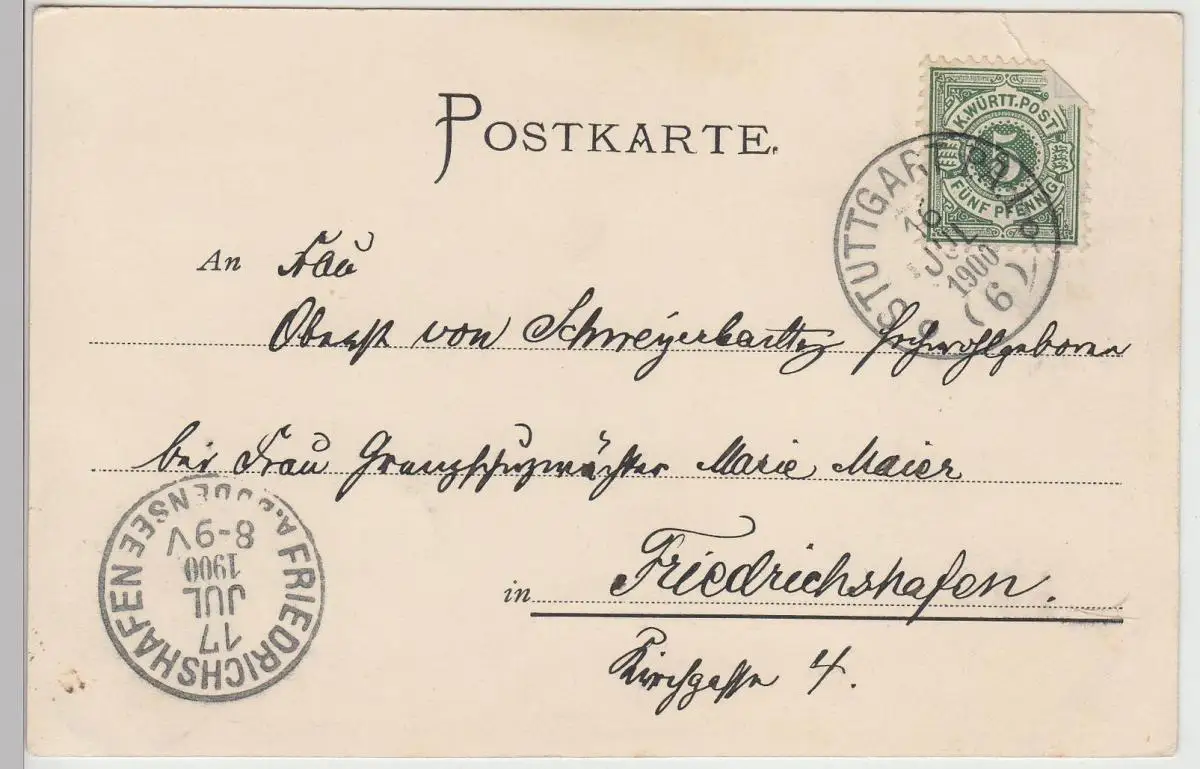 POSTKARTE.
K. WÜRTT. POST
5
FÜNF PFENNIG
STUTTGART
JUL
1900
(6)
An Frau
Oberst von Schweyerbarth Hochwohlgeboren
bei Frau Grenzschutzwächter Marie Maier
in Friedrichshafen.
Kirchgasse 4.
FRIEDRICHSHAFEN A. BODENSEE
17
JUL
1900
8-9V